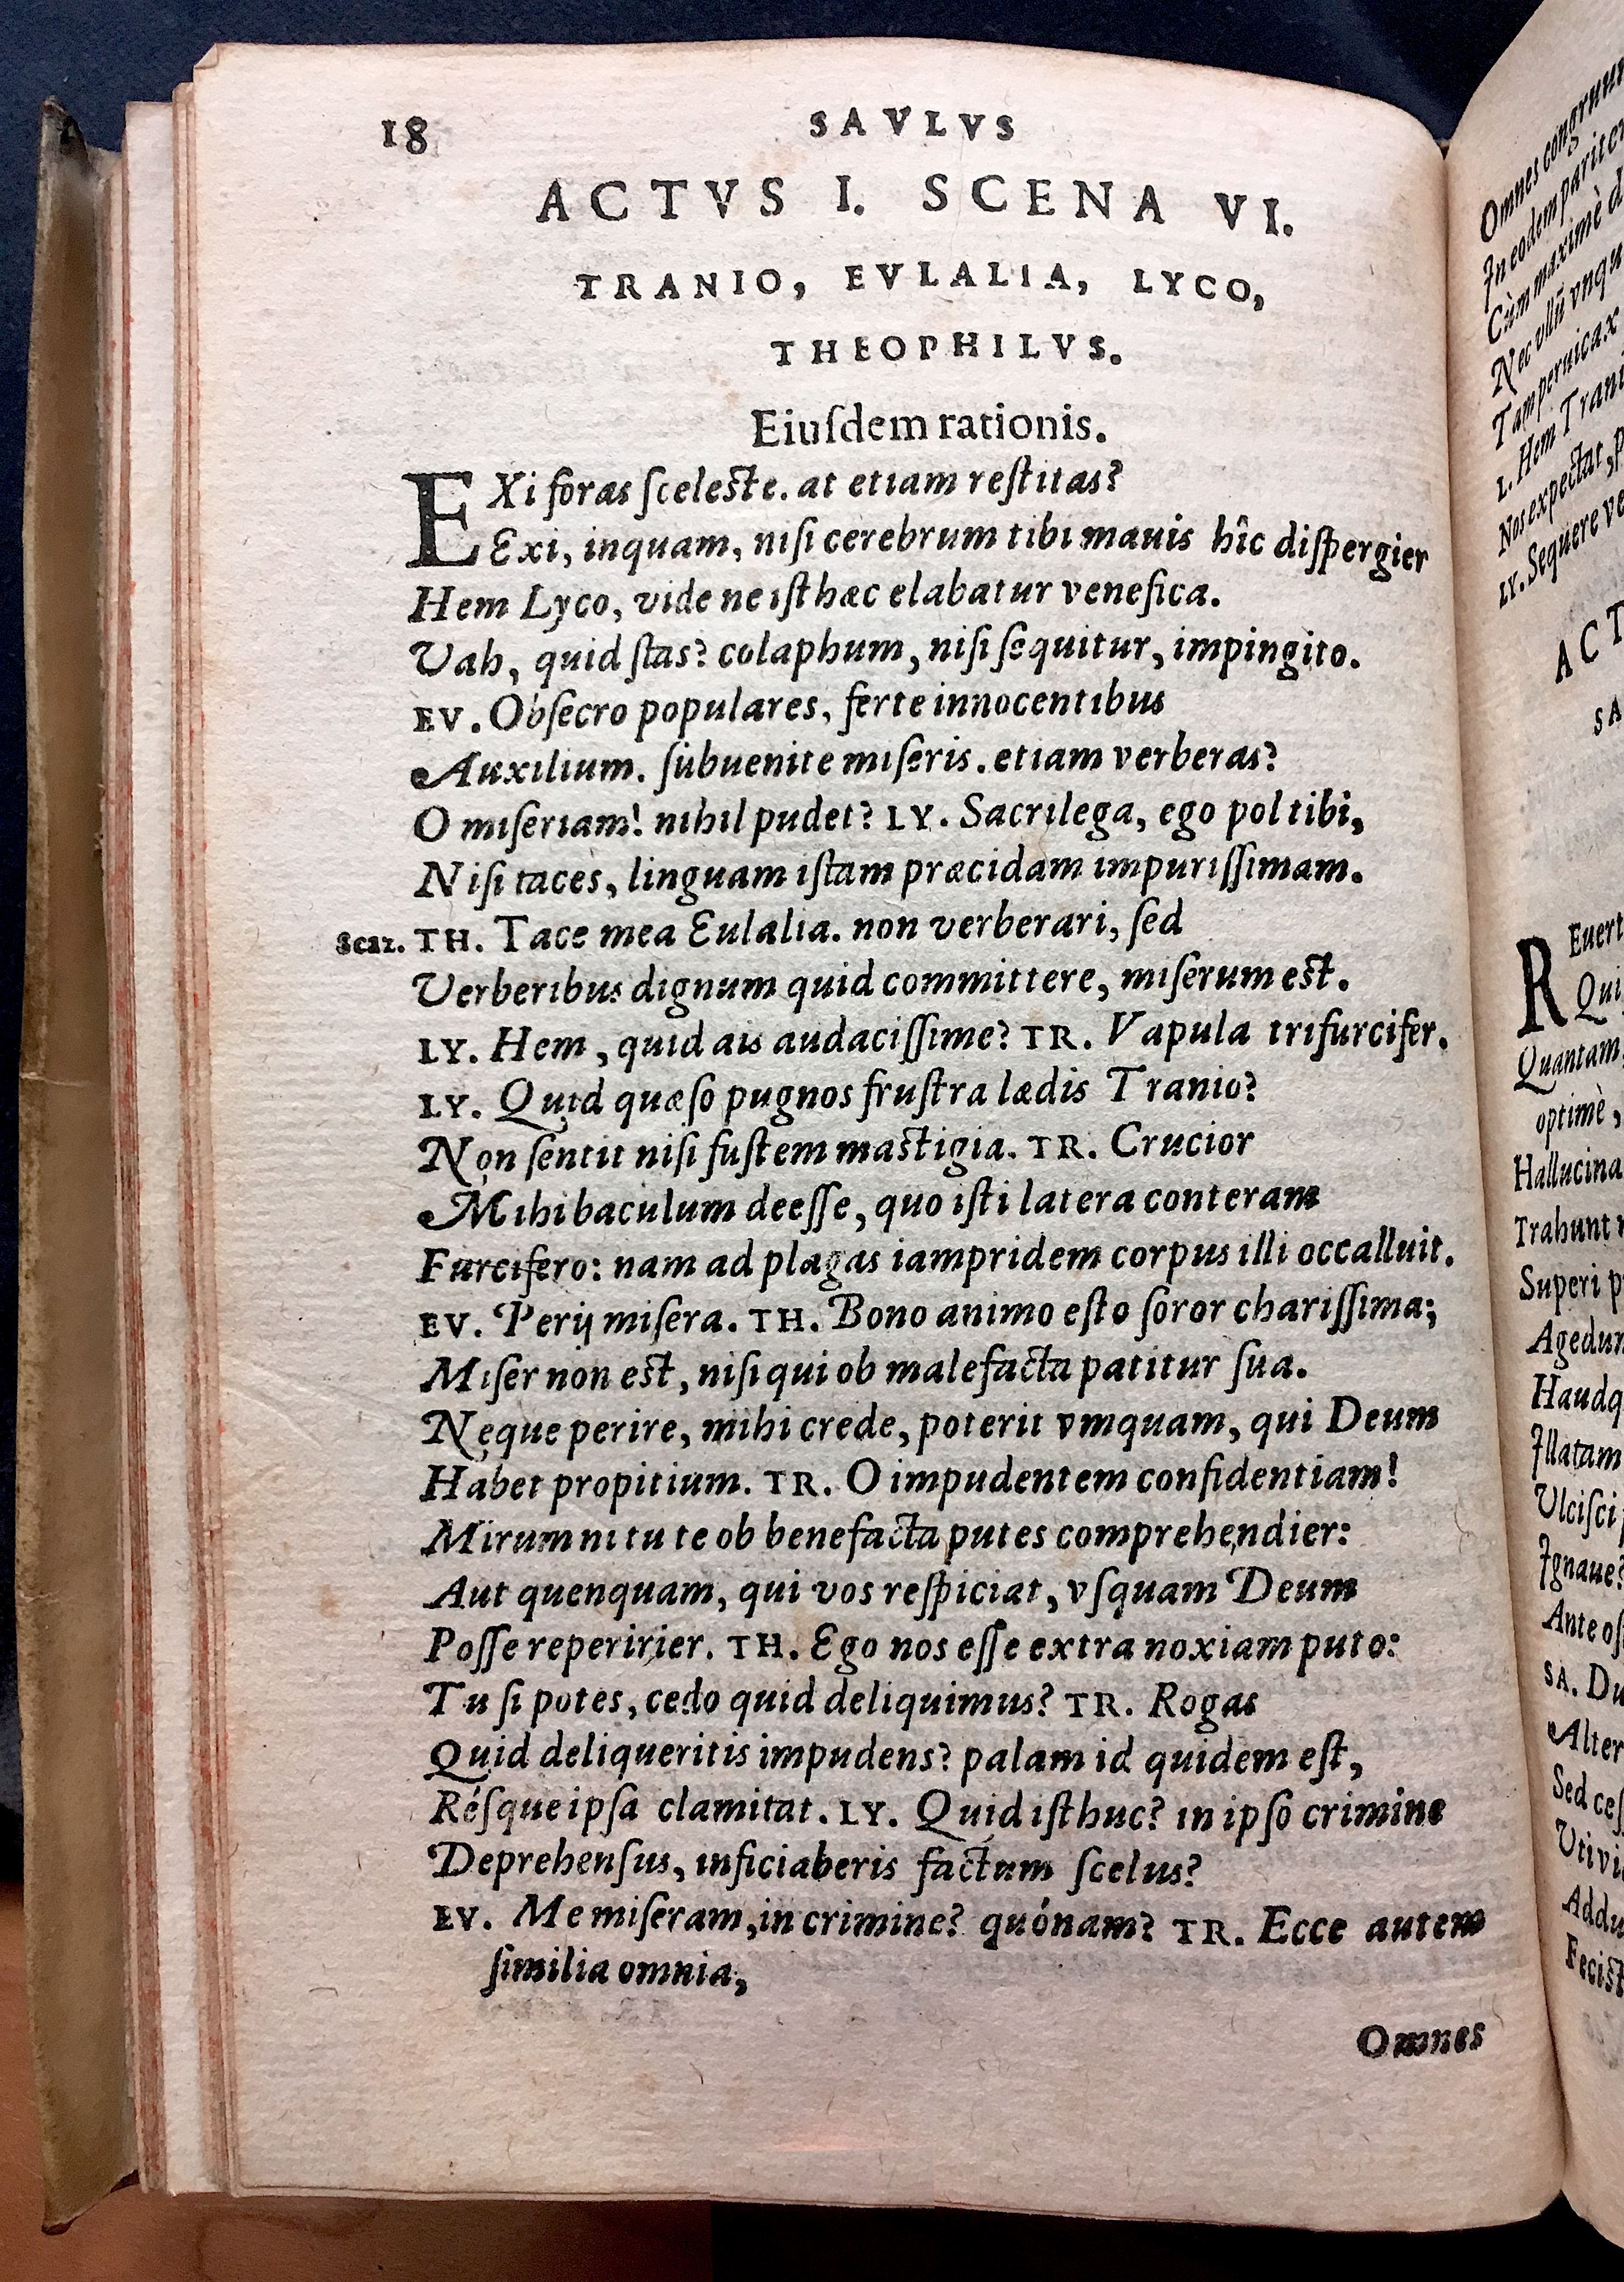 18 SAVLVS
ACTVS I. SCENA VI.
TRANIO, EVLALIA, LYCO,
THEOPHILVS.
Eiuſdem rationis.
EXi foras ſceleſte. at etiam reſtitas?
Exi, inquam, niſi cerebrum tibi mauis hîc diſpergier
Hem Lyco, vide ne iſthæc elabatur venefica.
Vah, quid ſtas? colaphum, niſi ſequitur, impingito.
EV. Obſecro populares, ferte innocentibus
Auxilium. ſubuenite miſeris. etiam verberas?
O miſeriam! nihil pudet? LY. Sacrilega, ego pol tibi,
Niſi taces, linguam iſtam præcidam impuriſſimam.
Scaz. TH. Tace mea Eulalia. non verberari, ſed
Verberibus dignum quid committere, miſerum eſt.
LY. Hem, quid ais audaciſſime? TR. Vapula trifurcifer.
LY. Quid quæſo pugnos fruſtra lædis Tranio?
Non ſentit niſi fuſtem maſtigia. TR. Crucior
Mihi baculum deeſſe, quo iſti latera conteram
Furcifero: nam ad plagas iampridem corpus illi occalluit.
EV. Perij miſera. TH. Bono animo eſto ſoror chariſſima;
Miſer non eſt, niſi qui ob malefacta patitur ſua.
Neque perire, mihi crede, poterit vmquam, qui Deum
Habet propitium. TR. O impudentem confidentiam!
Mirum ni tu te ob benefacta putes comprehendier:
Aut quenquam, qui vos reſpiciat, vſquam Deum
Poſſe reperirier. TH. Ego nos eſſe extra noxiam puto:
Tu ſi potes, cedo quid deliquimus? TR. Rogas
Quid deliqueritis impudens? palam id quidem eſt,
Réſque ipſa clamitat. LY. Quid iſthuc? in ipſo crimine
Deprehenſus, inficiaberis factum ſcelus?
EV. Me miſeram, in crimine? quónam? TR. Ecce autem
ſimilia omnia,
Omnes
Omnes congruunt
In eodem pariter
Cùm maximè
Nec vllũ vnqu
Tam peruicax
L. Hem Trani
Nos expectat,
LY. Sequere ve
ACT
SA
REuert
Qui
Quantam
optimè,
Hallucina
Trahunt
Superi p
Agedum
Haudq
Illatam
Vlciſci
Ignaue?
Ante oſ
SA. Du
Alter
Sed ceſ
Vtivi
Addu
Feciſt